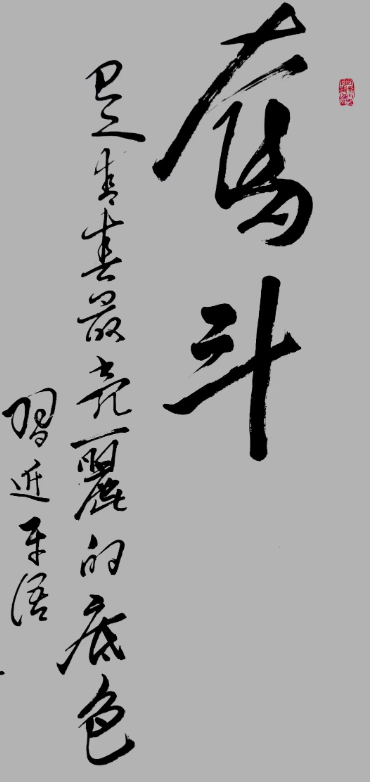 奮斗
是青春最亮麗的底色
習近平语